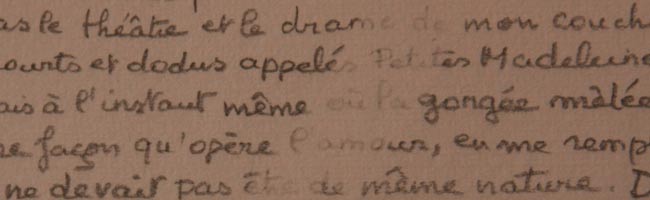 as le théâtre et le drame de mon couch
ourts et dodus appelés Petites Madeleine
ais à l'instant même où la gorgée mêlée
ne façon qu'opère l'amour, en me remp
ne devait pas être de même nature. D